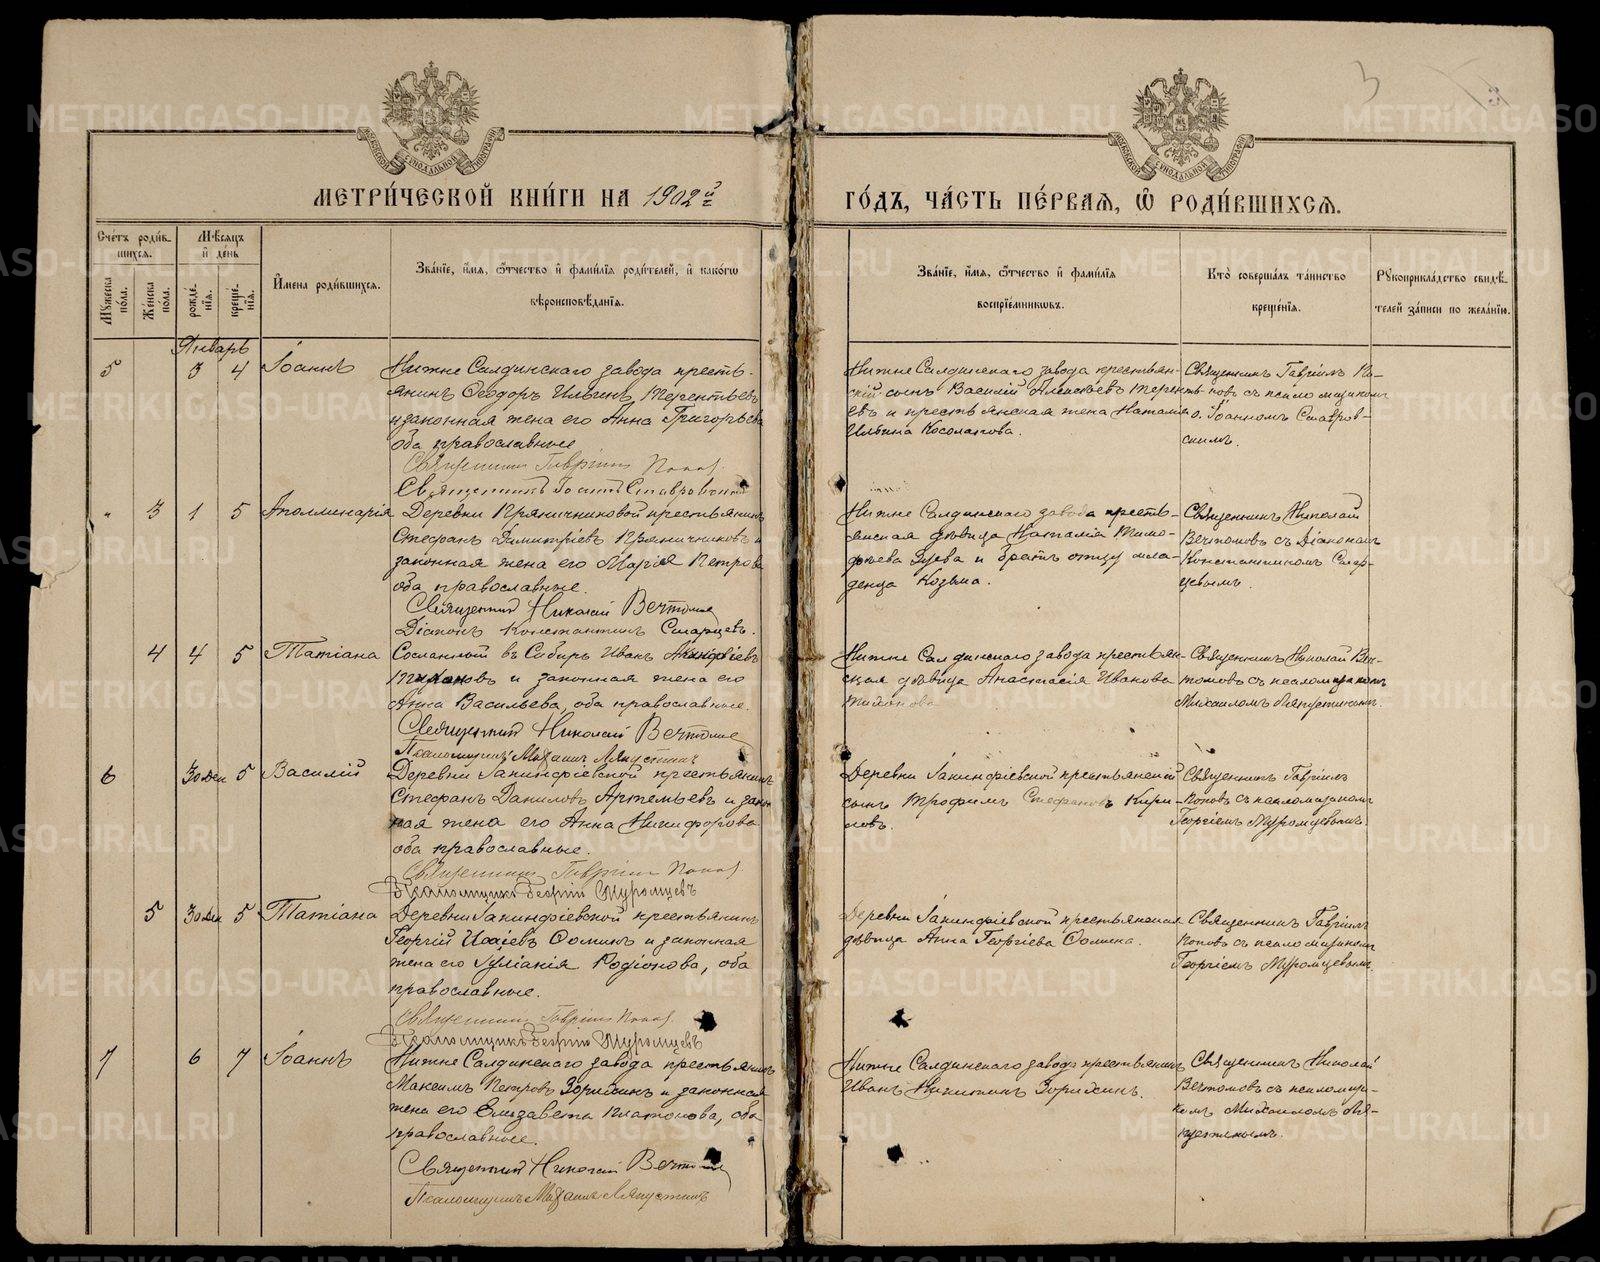 МЕТРИ́ЧЕСКОЙ КНИ́ГИ НА 1902й
ГО́ДЪ, ЧА́СТЬ ПЕ́РВАѦ, Ѡ РОДИ́ВШИХСѦ.
Сче́тъ роди́в-
шихсѧ.
Мѣ́сѧцъ
и҆ де́нь
Мꙋ́жеска
по́ла.
Же́нска
по́ла.
рожде́-
нїѧ.
креще́-
нїѧ.
И҆мена̀ роди́вшихсѧ.
Зва́нїе, и҆́мѧ, ѻ҆́тчество и҆ фами́лїѧ роди́телей, и҆ како́гѡ
вѣроисповѣ́данїѧ.
Зва́нїе, и҆́мѧ, ѻ҆́тчество и҆ фами́лїѧ
воспрїе́мникѡвъ.
Кто̀ соверша́лъ та́инство
креще́нїѧ.
Рꙋкоприкла́дство свидѣ́-
телей за́писи по жела́нїю.
Январь
5 3 4 Іоаннъ
Нижне Салдинскаго завода кресть-
янинъ Ѳеодоръ Ильинъ Терентьевъ
и законная жена его Анна Григорьева
оба православные
Священникъ Гавріилъ Поповъ
Священникъ Іоаннъ Ставровскій
Нижне Салдинскаго завода крестьян-
скій сынъ Василій Алексѣевъ Теренть-
евъ и крестьянская жена Наталія
Ильина Косолапова.
Священникъ Гавріилъ По-
повъ съ псаломщикомъ
о. Іоанномъ Ставров-
скимъ.
" 3 1 5 Аполлинарія
Деревни Пряничниковой крестьянинъ
Стефанъ Димитріевъ Пряничниковъ и
законная жена его Марія Петрова
оба православные.
Священникъ Николай Вечтомовъ
Діаконъ Константинъ Смарцевъ.
Нижне Салдинскаго завода кресть-
янская дѣвица Наталія Тимо-
фѣева Зуева и братъ отцу мла-
денца Козьма.
Священникъ Николай
Вечтомовъ съ Діакономъ
Константиномъ Смар-
цевымъ.
4 4 5 Татіана
Сосланный въ Сибирь Иванъ Акинфіевъ
Тихановъ и законная жена его
Анна Васильева, оба православные.
Священникъ Николай Вечтомовъ
Псаломщикъ Михаилъ Ляпустинъ
Нижне Салдинскаго завода крестьян-
ская дѣвица Анастасія Иванова
Тиханова
Священникъ Николай Веч-
томовъ съ псаломщикомъ
Михаиломъ Ляпустинымъ.
6 30 Дек 5 Василій
Деревни Іакинфіевской крестьянинъ
Стефанъ Даниловъ Артемьевъ и закон-
ная жена его Анна Никифорова
оба православные.
Священникъ Гавріилъ Поповъ
Псаломщикъ Георгій Муромцевъ
Деревни Іакинфіевской крестьянскій
сынъ Трофимъ Стефановъ Кири-
ловъ.
Священникъ Гавріилъ
Поповъ съ псаломщикомъ
Георгіемъ Муромцевымъ.
5 30 Дек 5 Татіана
Деревни Іакинфіевской крестьянинъ
Георгій Исаіевъ Ѳоминъ и законная
жена его Іуліанія Родіонова, оба
православные.
Священникъ Гавріилъ Поповъ
Псаломщикъ Георгій Муромцевъ
Деревни Іакинфіевской крестьянская
дѣвица Анна Георгіева Ѳомина.
Священникъ Гавріилъ
Поповъ съ псаломщикомъ
Георгіемъ Муромцевымъ.
7 6 7 Іоаннъ
Нижне Салдинскаго завода крестьянинъ
Максимъ Петровъ Зорихинъ и законная
жена его Елизавета Платонова, оба
православные.
Священникъ Николай Вечтомовъ
Псаломщикъ Михаилъ Ляпустинъ
Нижне Салдинскаго завода крестьянинъ
Иванъ Никитинъ Зорихинъ.
Священникъ Николай
Вечтомовъ съ псаломщи-
комъ Михаиломъ Ля-
пустинымъ.
METRIKI.GASO-URAL.RU